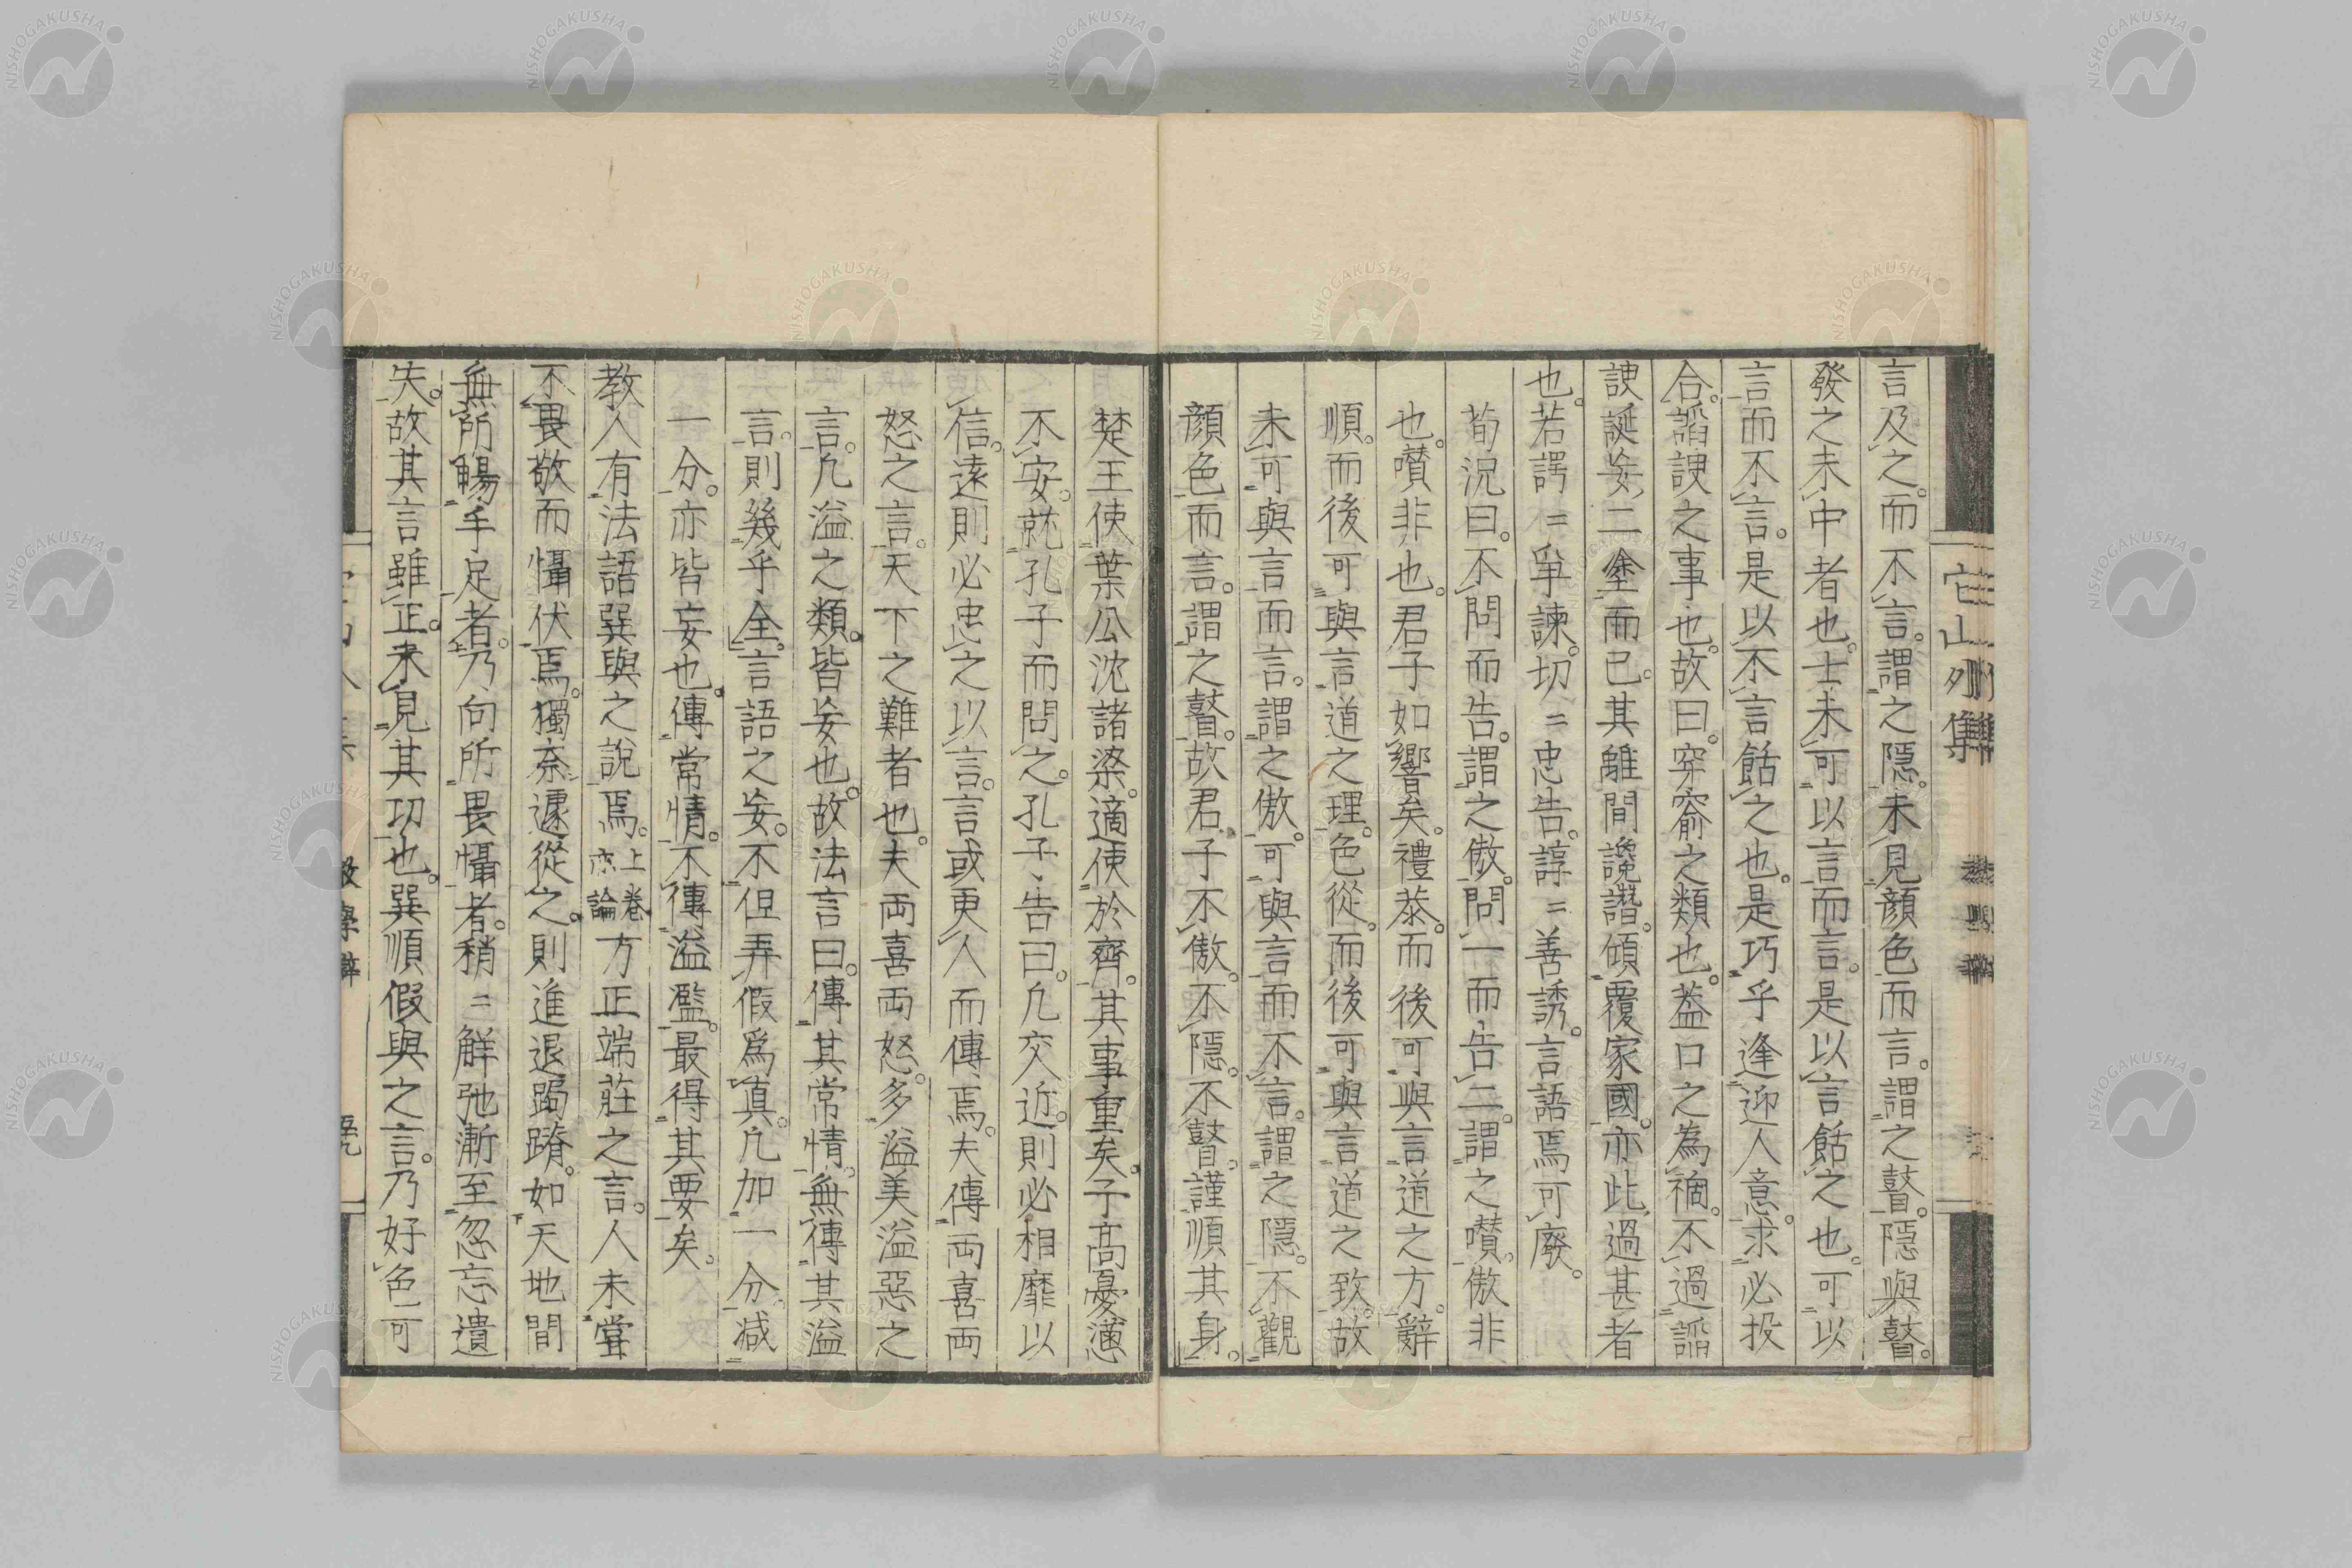 言及之。而不言。謂之隱。未見顏色而言。謂之瞽。隱與瞽。
發之未中者也。士未可以言而言。是以言餂之也。可以
言而不言。是以不言餂之也。是巧乎逢迎人意。求必投
合。謟諛之事也。故曰。穿窬之類也。葢口之為禍。不過謟
諛誕妄二塗而已。其離間讒譖。傾覆家國。亦此過甚者
也。若諤〻爭諫。切〻忠告。諄〻善誘。言語焉可廢。
荀況曰。不問而告。謂之傲。問一而告二。謂之囋。傲非
也。囋非也。君子如響矣。禮恭。而後可與言道之方。辭
順。而後可與言道之理。色從。而後可與言道之致。故
未可與言而言。謂之傲。可與言而不言。謂之隱。不觀
顏色而言。謂之瞽。故君子不傲。不隱。不瞽。謹順其身。
它山列集
楚王使葉公沈諸梁。適使於齊。其事重矣。子高憂懣
不安。就孔子而問之。孔子告曰。凡交近。則必相靡以
信。遠則必忠之以言。言或更人而傳焉。夫傳両喜両
怒之言。天下之難者也。夫両喜両怒。多溢美溢惡之
言。凡溢之類。皆妄也。故法言曰。傳其常情。無傳其溢
言。則幾乎全。言語之妄。不但弄假爲真。凡加一分減
一分。亦皆妄也。傳常情。不傳溢濫。最得其要矣。
教人有法語巽與之說焉。上卷亦論方正端莊之言。人未甞
不畏敬而懾伏焉。獨奈遽從之。則進退跼蹐。如天地間
無所暢手足者。乃向所畏懾者。稍〻觧弛漸至忽忘遺
失。故其言雖正。未見其功也。巽順假與之言。乃好色可